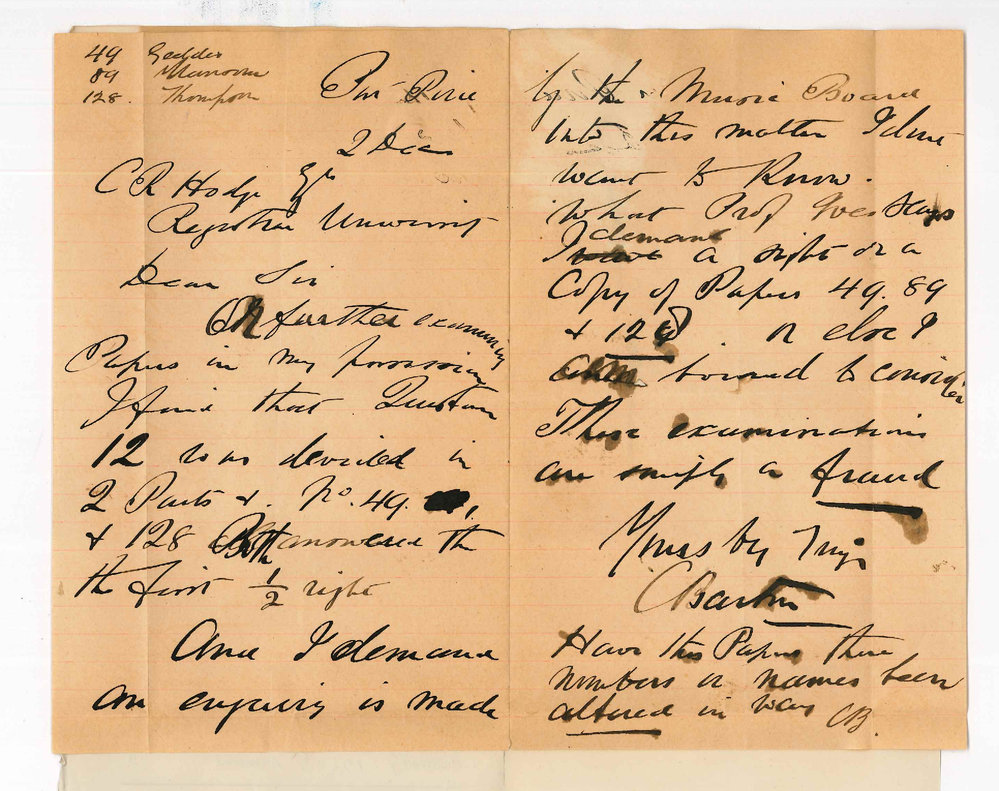 49 Geddes
89 Manoora
128. Thompson
Port Pirie
2 Dec
C R Hodge Esq
Registrar University
Dear Sir
On further examining
Papers in my possession
I find that Question
12 was devided in
2 Parts & No. 49.
& 128 Both answered the
the first 1/2 right
And I demand
an enquiry is made
by the Music Board
into this matter I dont
want to Know.
What Prof Ives says
I demand a sight or a
Copy of Papers 49. 89
& 128 . or else I
am bound to consider
These examinations
are simply a fraud
Yours by
C Barton
Have this Papers there
numbers or names been
altered in way CB.